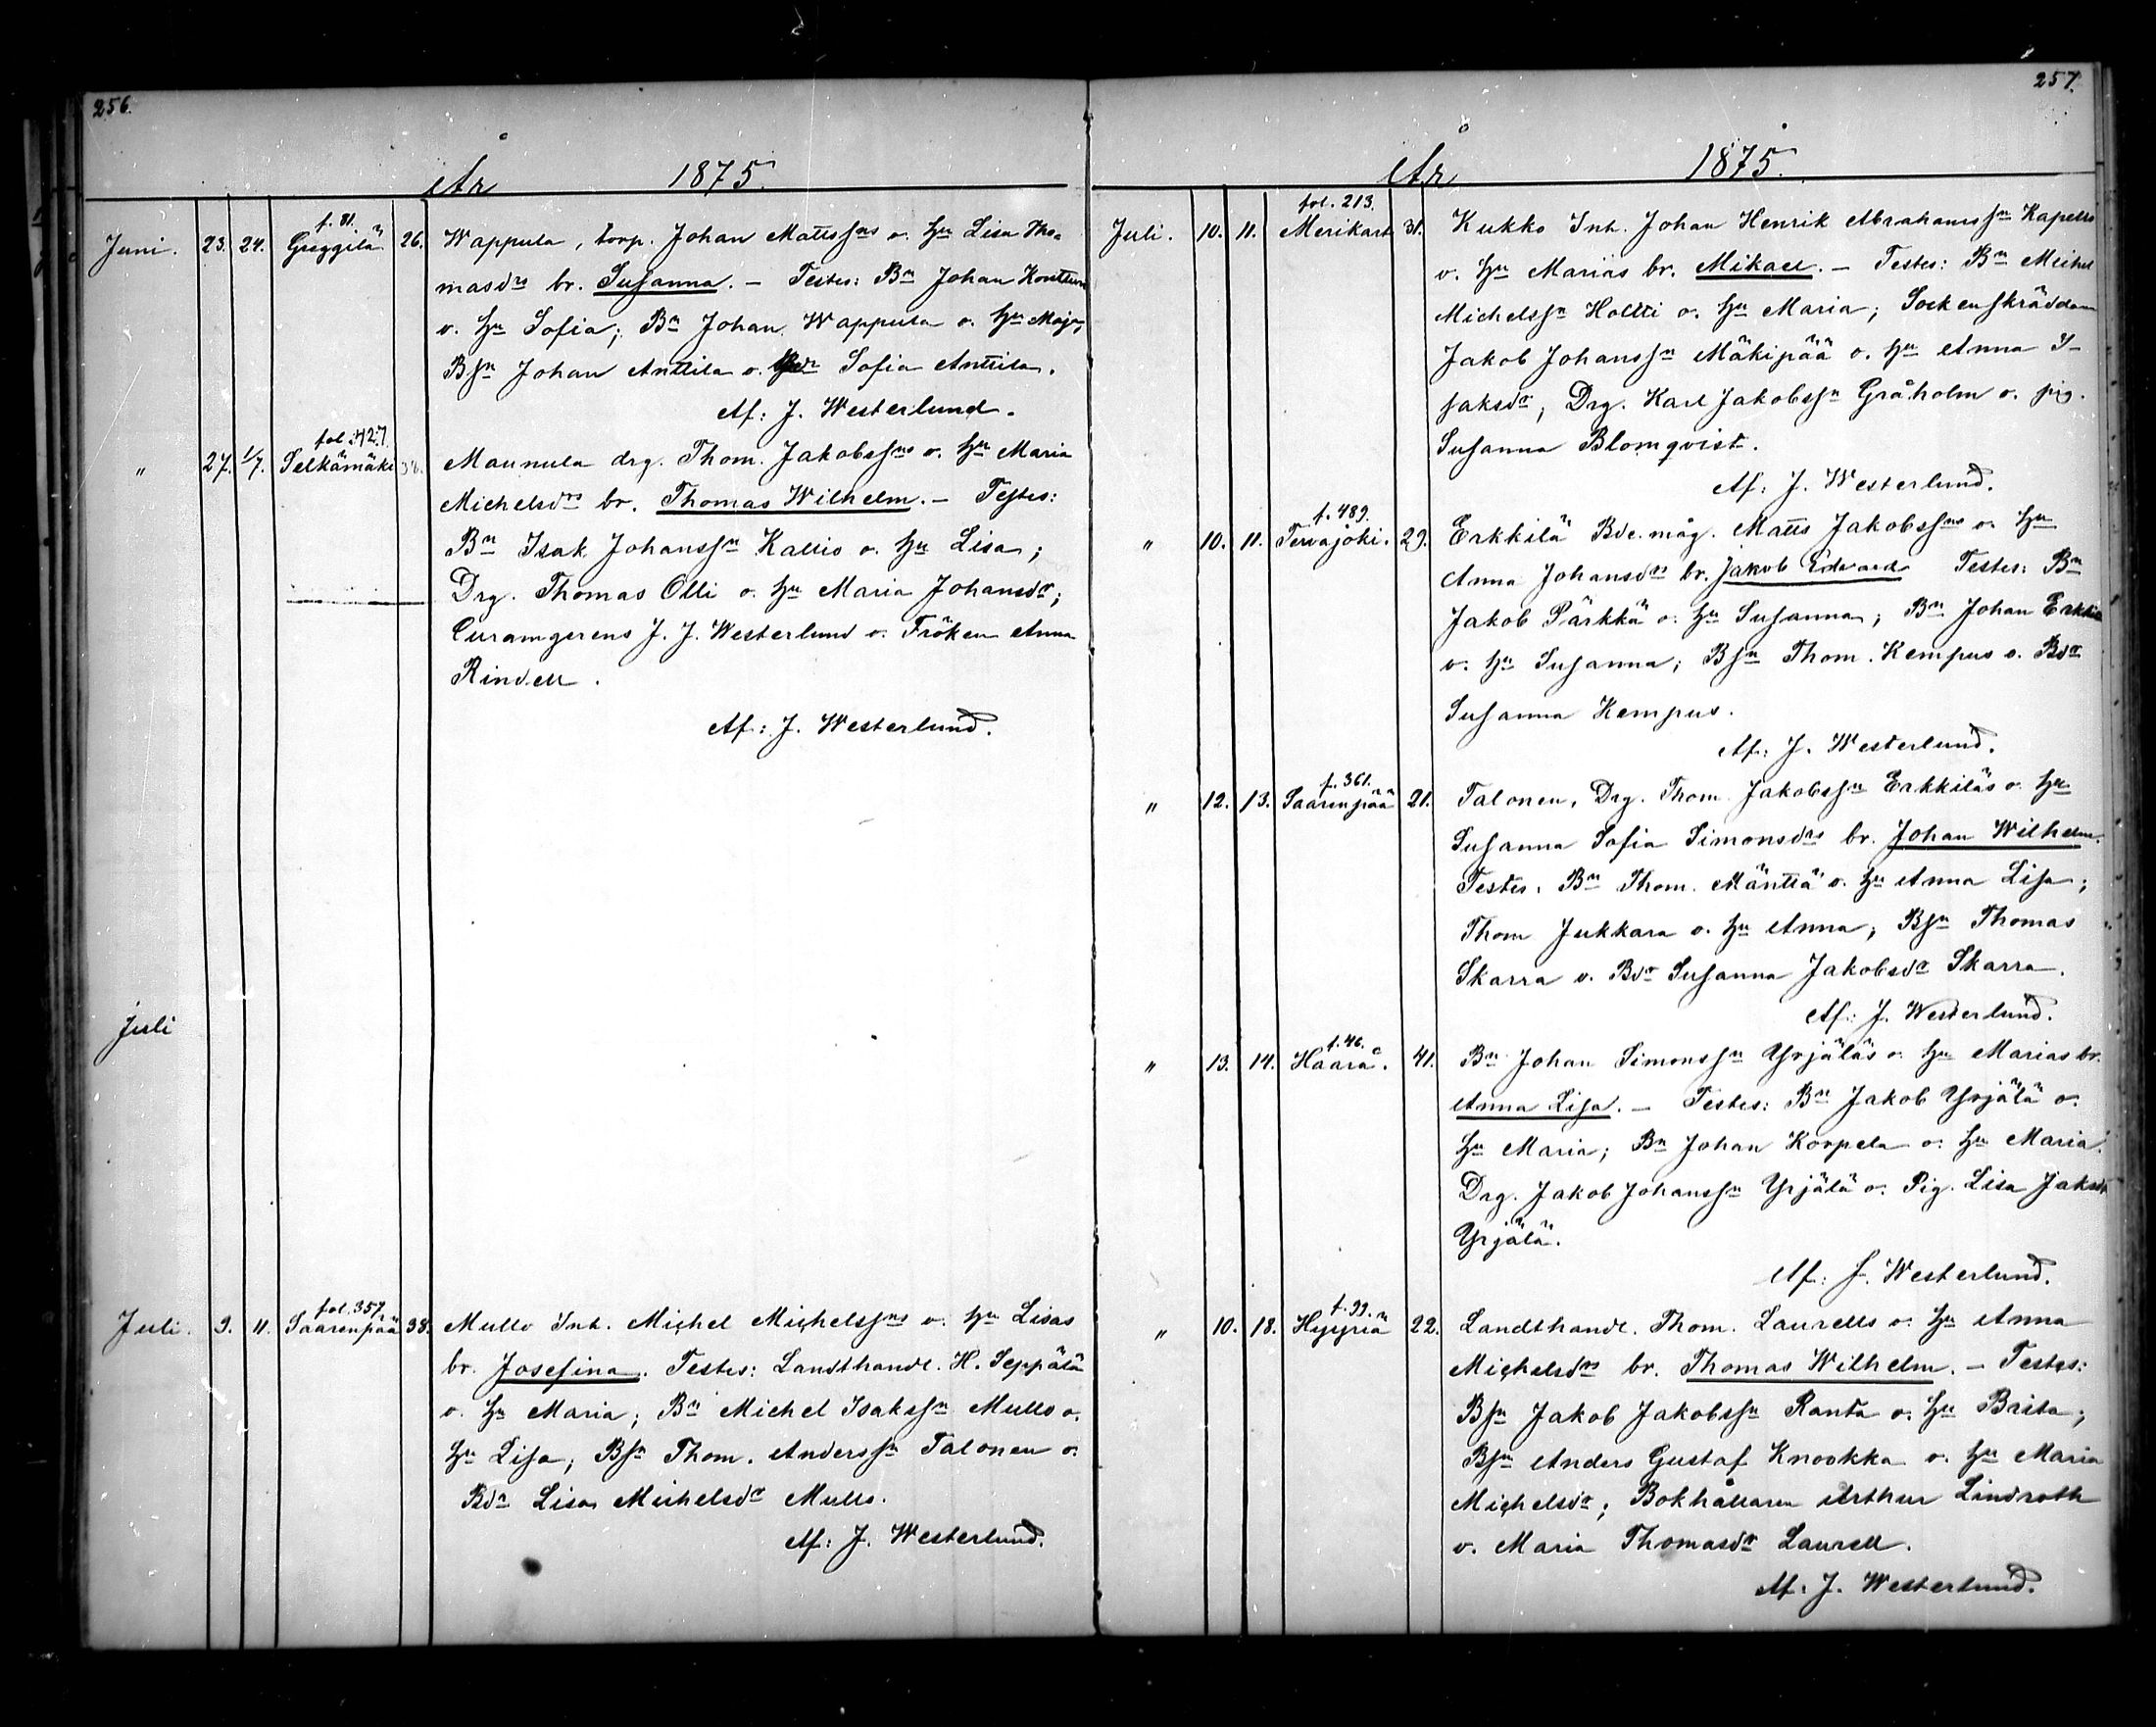 256.
År 1875.
f. 81.
Juni. 23. 24. Greggilä 26. Wappula, torp. Johan Mattsſns o. hu Lisa Tho-
masdrs br. Suſanna. — Testes: Bn Johan
o. hu Sofia; Bn Johan Wappula o. hu Maja,
Bſn Johan Anttila o. Bdr Sofia Anttila.
Af: J. Westerlund.
fol. 427.
" 27. 1/7. Selkämäki Maunula drg. Thom. Jakobsſns o. hu Maria
Michelsdrs br. Thomas Wilhelm. — Testes:
Bn Isak Johansſn Kallio o. hu Lisa;
Drg. Thomas Olli o. hu Maria Johansdr;
Curamgerens J. J. Westerlund o. Fröken Anna
Rindell.
Af: J. Westerlund.
Juli
fol. 357.
Juli. 9. 11. Saarenpää 38. Mullo Inh. Michel Michelsſns o. hu Lisas
br. Josefina. Testes: Landthandl. H. Seppälä
o. hu Maria; Bn Michel Isaksſn Mullo o.
hu Liſa; Bſn Thom. Andersſn Talonen o.
Bdr Lisa Michelsdr Mullo.
Af: J. Westerlund.
257.
År 1875.
fol. 213.
Juli. 10. 11. Merikart 31. Kukko Inh. Johan Henrik Abrahamsſn Kapells
o. hu Marias br. Mikael. — Testes: Bn Michel
Michelsſn Hollti o. hu Maria; Sockenſkräddaren
Jakob Johansſn Mäkipää o. hu Anna I-
ſaksdr; Drg. Karl Jakobsſn Gråholm o. pig.
Suſanna Blomqvist.
Af: J. Westerlund.
f. 489.
" 10. 11. Tervajoki. 29. Erkkilä Bde.måg. Matts Jakobsſns o. hu
Anna Johansdrs br. Jakob Edvard Testes: Bn
Jakob Pärkkä o. hu Suſanna; Bn Johan Erkkilä
o. hu Suſanna; Bſn Thom. Kempus o. Bdr
Suſanna Kempus.
Af: J. Westerlund.
f. 361.
" 12. 13. Saarenpää 21. Talonen, Drg. Thom. Jakobsſn Erkkiläs o. hu
Suſanna Sofia Simonsdrs br. Johan Wilhelm.
Testes: Bn Thom. Mänttä o. hu Anna Liſa;
Thom Jukkara o. hu Anna; Bſn Thomas
Skarra o. Bdr Suſanna Jakobsdr Skarra.
Af: J. Westerlund.
f. 46.
" 13. 14. Haarå. 41. Bn Johan Simonsſn Yrjäläs o. hu Marias br.
Anna Liſa. — Testes: Bn Jakob Yrjälä o.
hu Maria; Bn Johan Korpela o. hu Maria;
Drg. Jakob Johansſn Yrjälä o. Pig. Lisa Jaksdr
Yrjälä.
Af: J. Westerlund.
f. 99.
" 10. 18. Hyyriä 22. Landthandl. Thom. Laurells o. hu Anna
Michelsdrs br. Thomas Wilhelm. — Testes:
Bſn Jakob Jakobsſn Ranta o. hu Brita;
Bſn Anders Gustaf Knookka o. hu Maria
Michelsdr; Bokhållaren Arthur Lindroth
o. Maria Thomasdr Laurell.
Af: J. Westerlund.